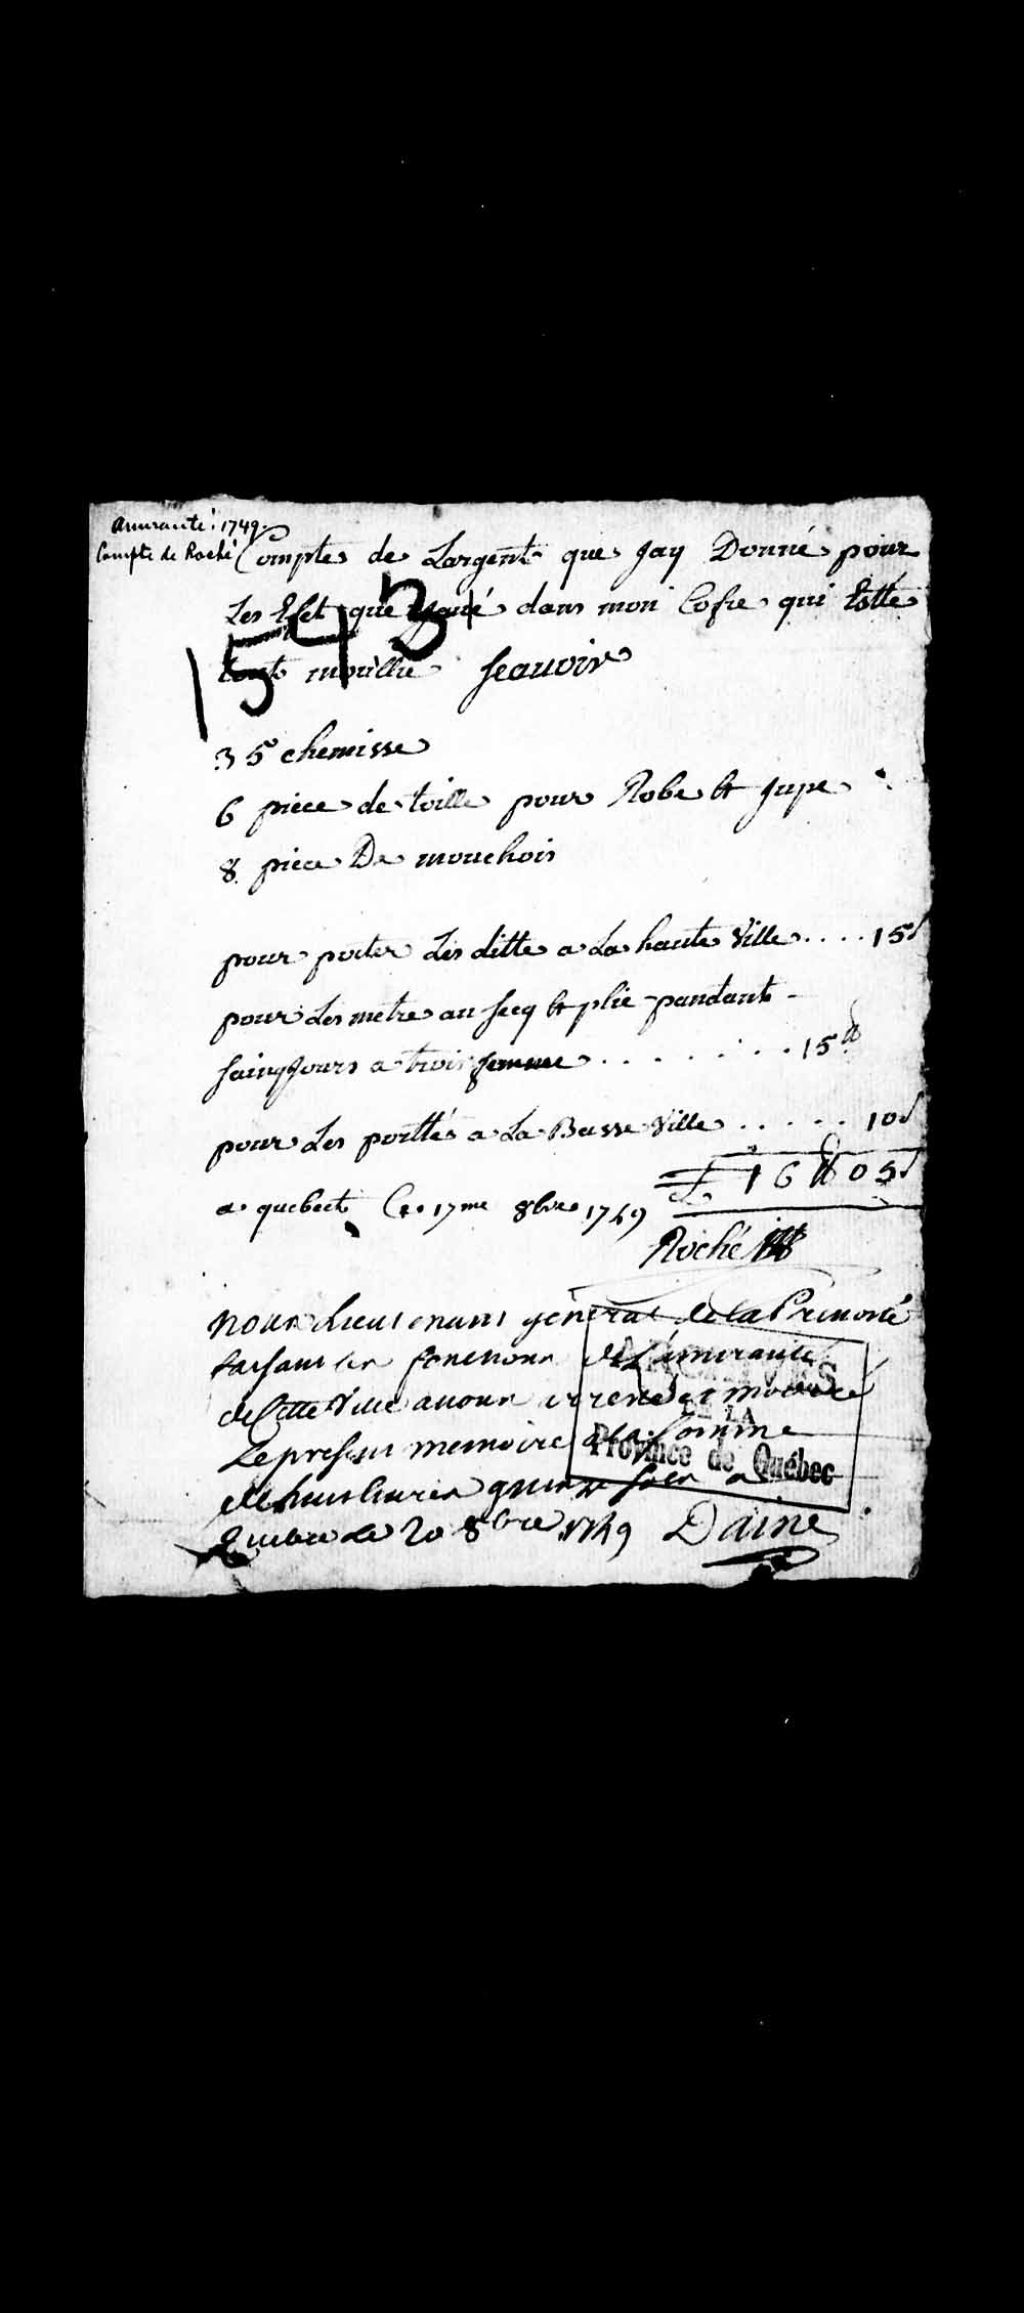 Amirauté: 1749.
Compte de Roché
Compte de Largent que Jay Donné pour
Les Efet que Javé dans mon Cofre qui Estté
tout mouillie Seavoir
1543
35 chemisse
6 piece de toille pour Robe et Jupe
8 piece De mouchois
pour porter Les ditte a La haute Ville .... 15s
pour Les metre au secq et plie pandant
sainq Jours a trois femme ........ 15lt
pour Les porttés a La Basse Ville ..... 10s
16lt 05s
a quebect Ce 17me 8bre 1749
Roché
Nous Lieutenant general de la Prevosté
faisant les fonctions de L'amirauté
de Cette Ville avons arresté et moderé
Le present memoire a la somme
de huit livres quinze sols a
Quebec le 20 8bre 1749 Daine
ARCHIVES
DE LA
Province de Québec